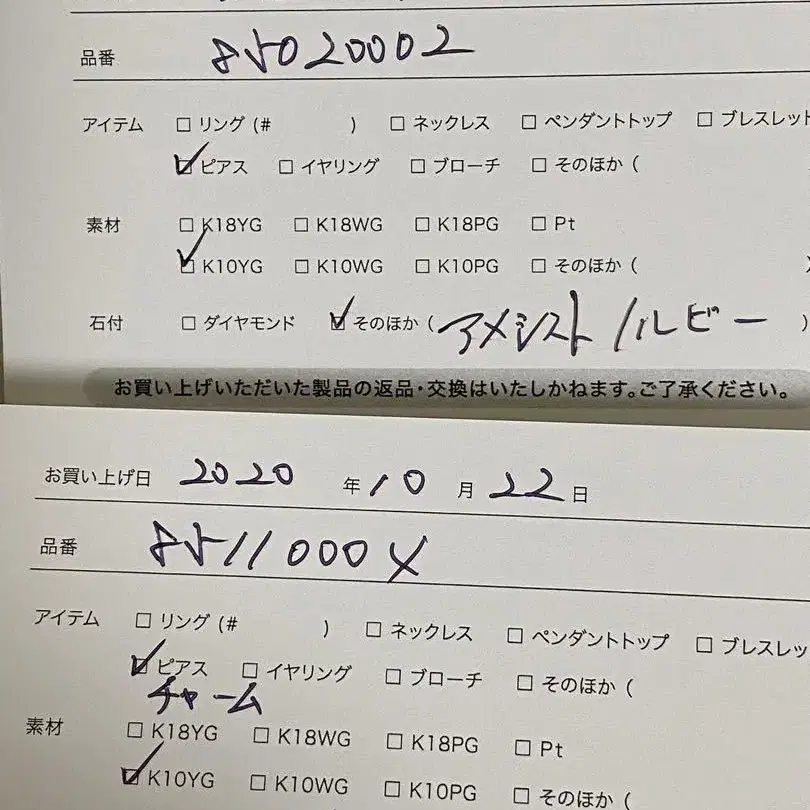 品番 85020002
アイテム □ リング (# ) □ ネックレス □ ペンダントトップ □ ブレスレット
☑ ピアス □ イヤリング □ ブローチ □ そのほか (
素材 □ K18YG □ K18WG □ K18PG □ Pt
☑ K10YG □ K10WG □ K10PG □ そのほか ( )
石付 □ ダイヤモンド ☑ そのほか ( アメシスト / ルビー )
お買い上げいただいた製品の返品・交換はいたしかねます。ご了承ください。
お買い上げ日 2020 年 10 月 22 日
品番 8511000X
アイテム □ リング (# ) □ ネックレス □ ペンダントトップ □ ブレスレッ
☑ ピアス □ イヤリング □ ブローチ □ そのほか (
チャーム
素材 □ K18YG □ K18WG □ K18PG □ Pt
☑ K10YG □ K10WG □ K10PG □ そのほか (